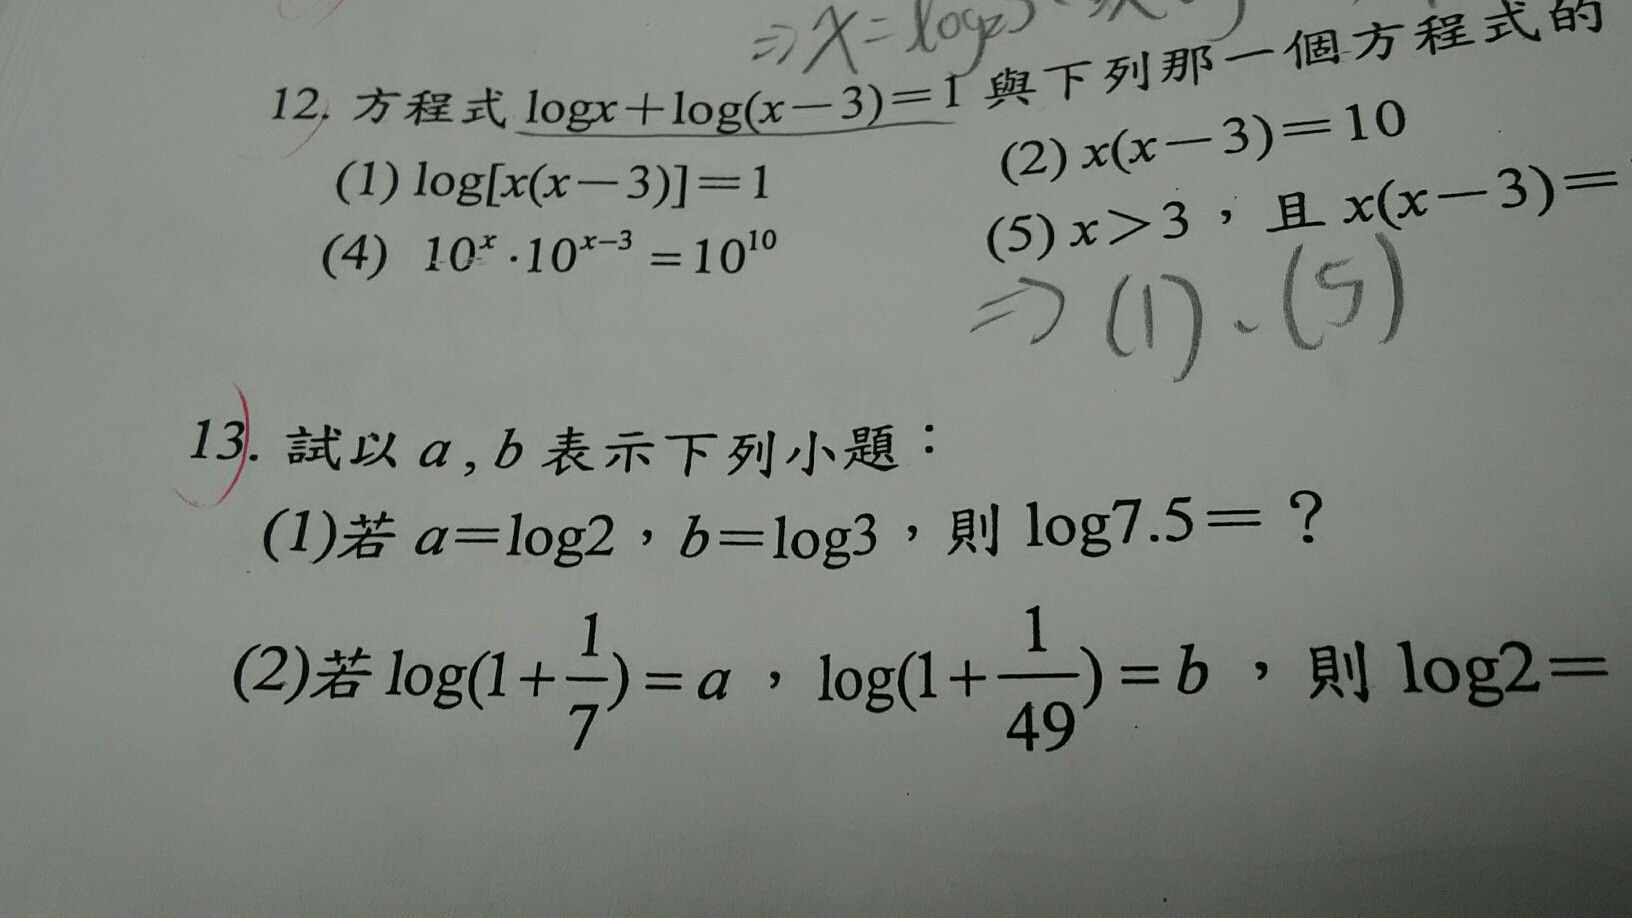 ⇒ x = log₂3
12. 方程式 logx+log(x−3)=1 與下列那一個方程式的
(1) log[x(x−3)]=1 (2) x(x−3)=10
(4) 10ˣ·10ˣ⁻³=10¹⁰ (5) x>3,且 x(x−3)=
⇒ (1)、(5)
13. 試以 a, b 表示下列小題:
(1)若 a=log2,b=log3,則 log7.5=?
(2)若 log(1+1/7)=a,log(1+1/49)=b,則 log2=